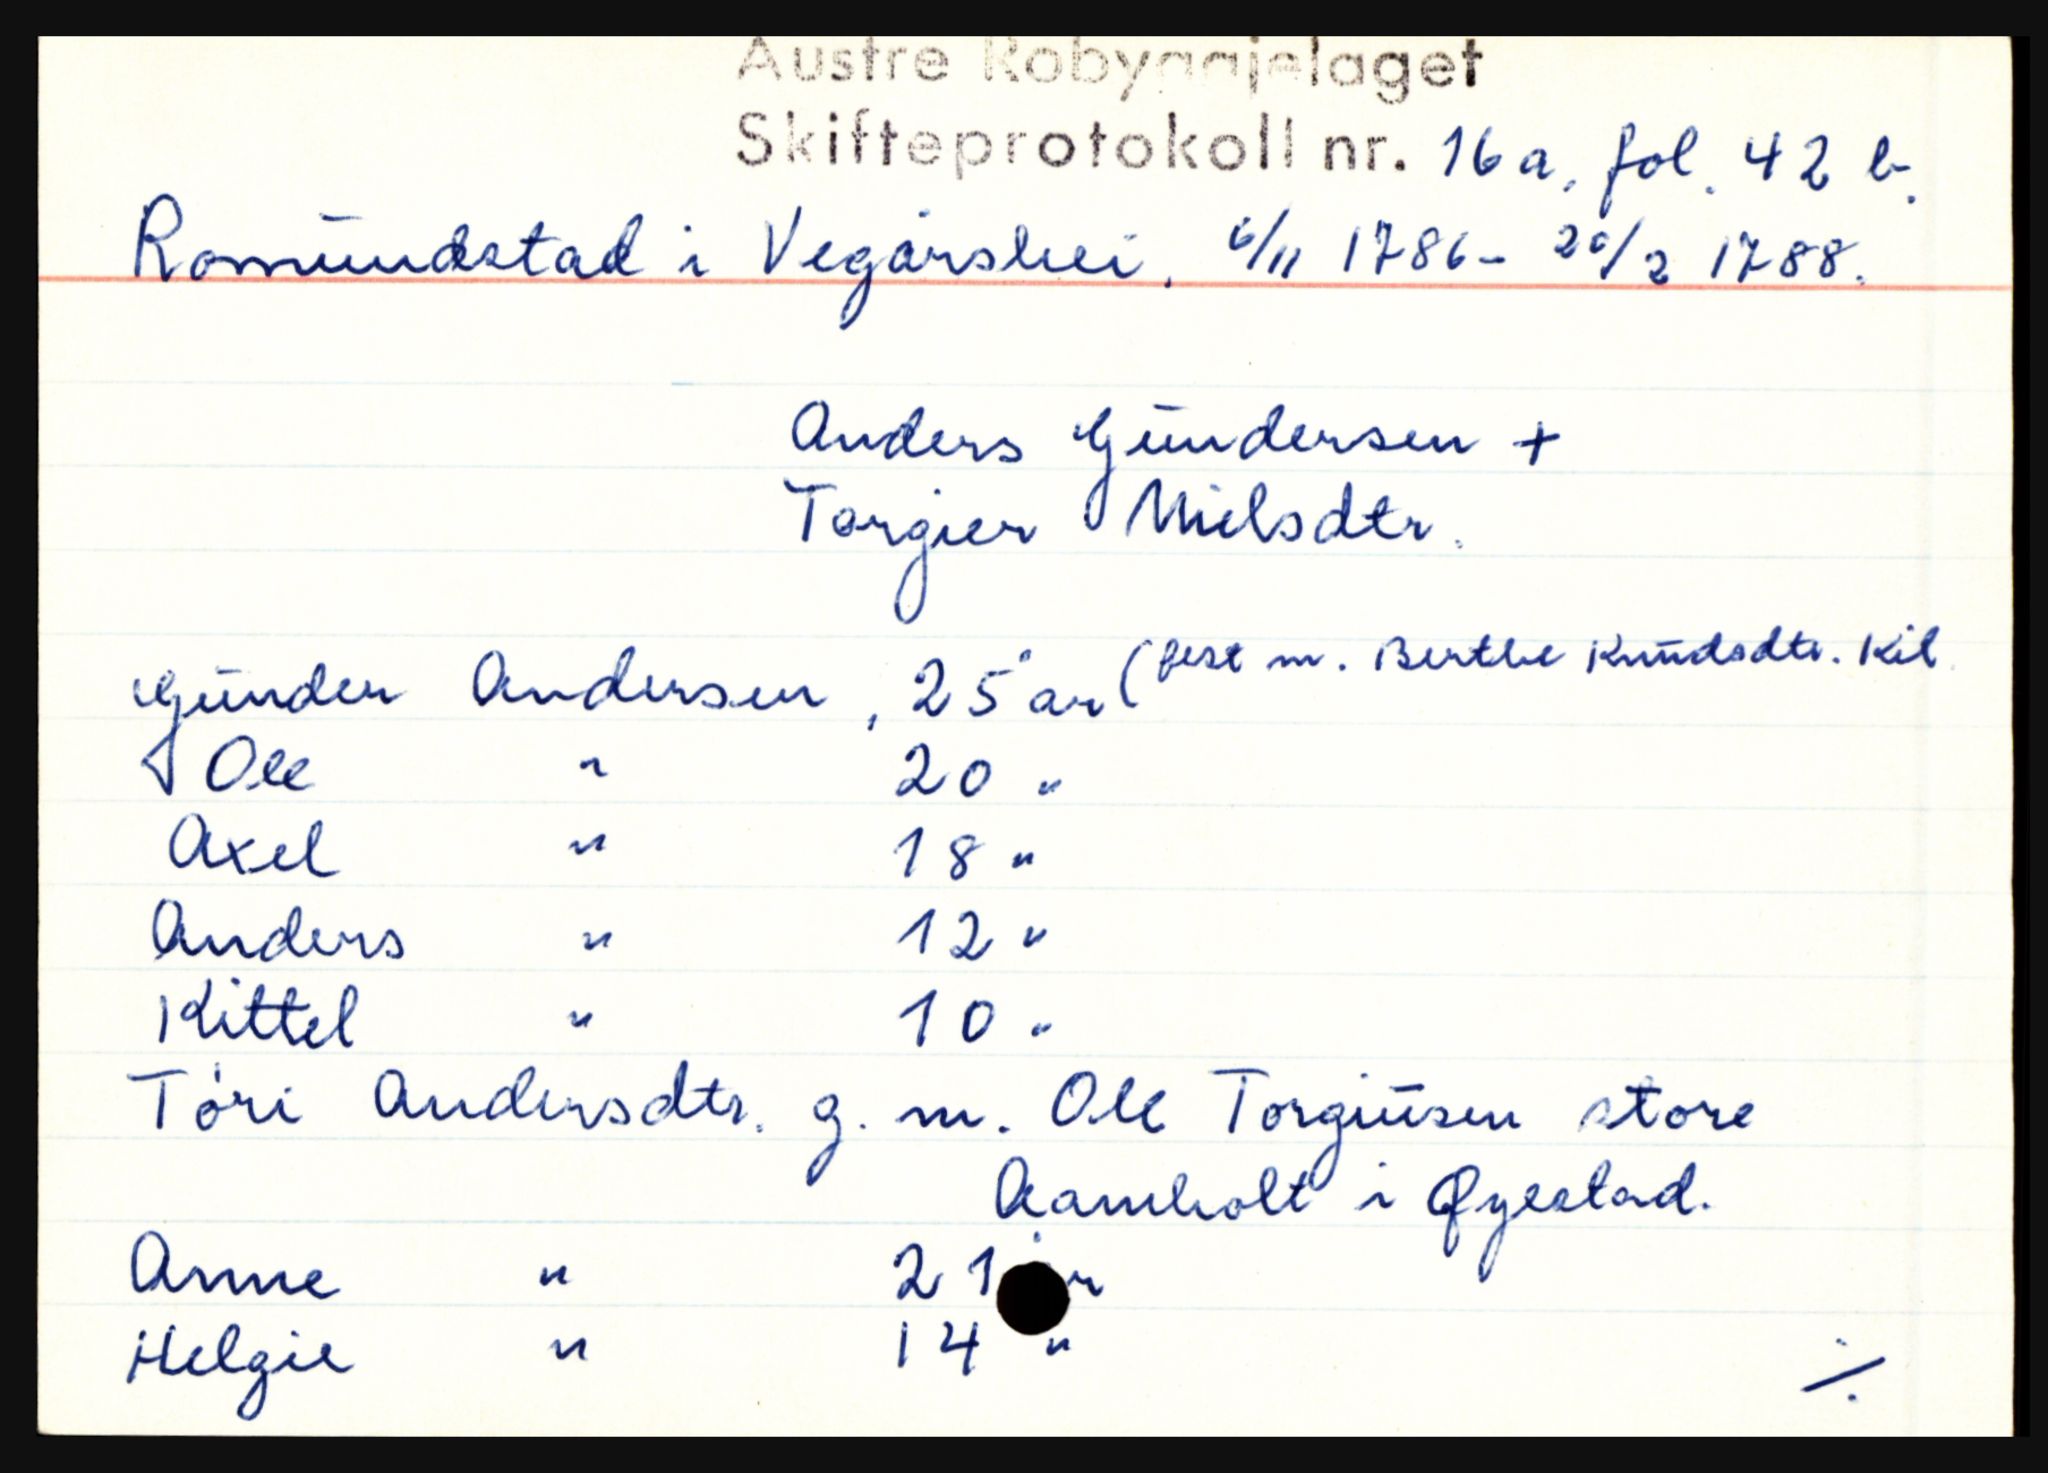 Austre Robyggjelaget
Skifteprotokoll nr. 16a, fol. 42 b.
Romundstad i Vegårshei, 6/11 1786 - 20/2 1788.
Anders Gundersen +
Torgier Nielsdtr.
Gunder Andersen, 25 år (fest m. Berthe Knudsdtr. Kil.
Ole " 20 "
Axel " 18 "
Anders " 12 "
Kittel " 10 "
Tóri Andersdtr. g. m. Ole Torgiusen store
Aamholt i Øyestad.
Anne " 21 år
Helgie " 14 "
./.